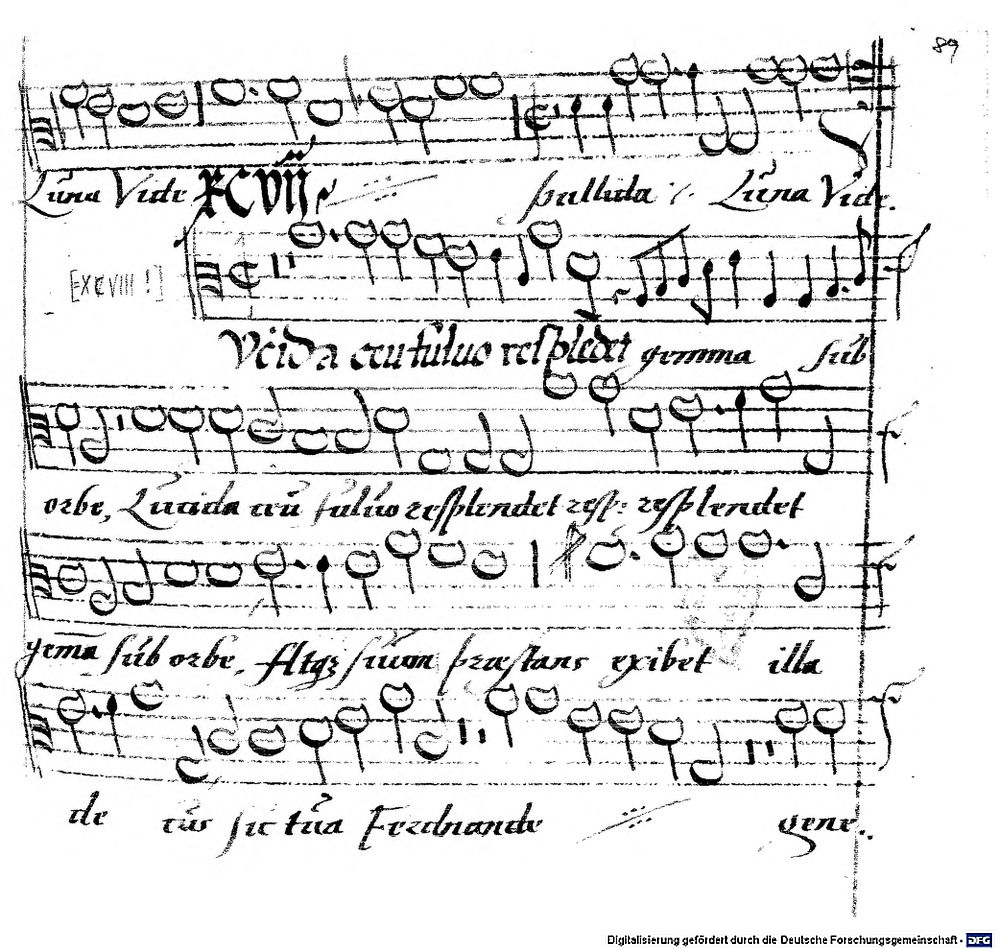 89
Luna Vide pallida Luna Vide.
XCVII
[XCVIII!]
Lucida ceu fuluo resplēdet gemma sub
orbe, Lucida ceū fuluo resplendet resp: resplendet
gēma sub orbe, Atqz suum præstans exibet illa
de cus sic tua Ferdnande gene..
Digitalisierung gefördert durch die Deutsche Forschungsgemeinschaft - DFG